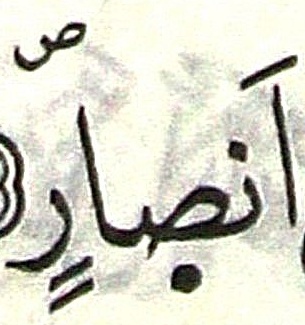 اَنص۪ارٍ ص